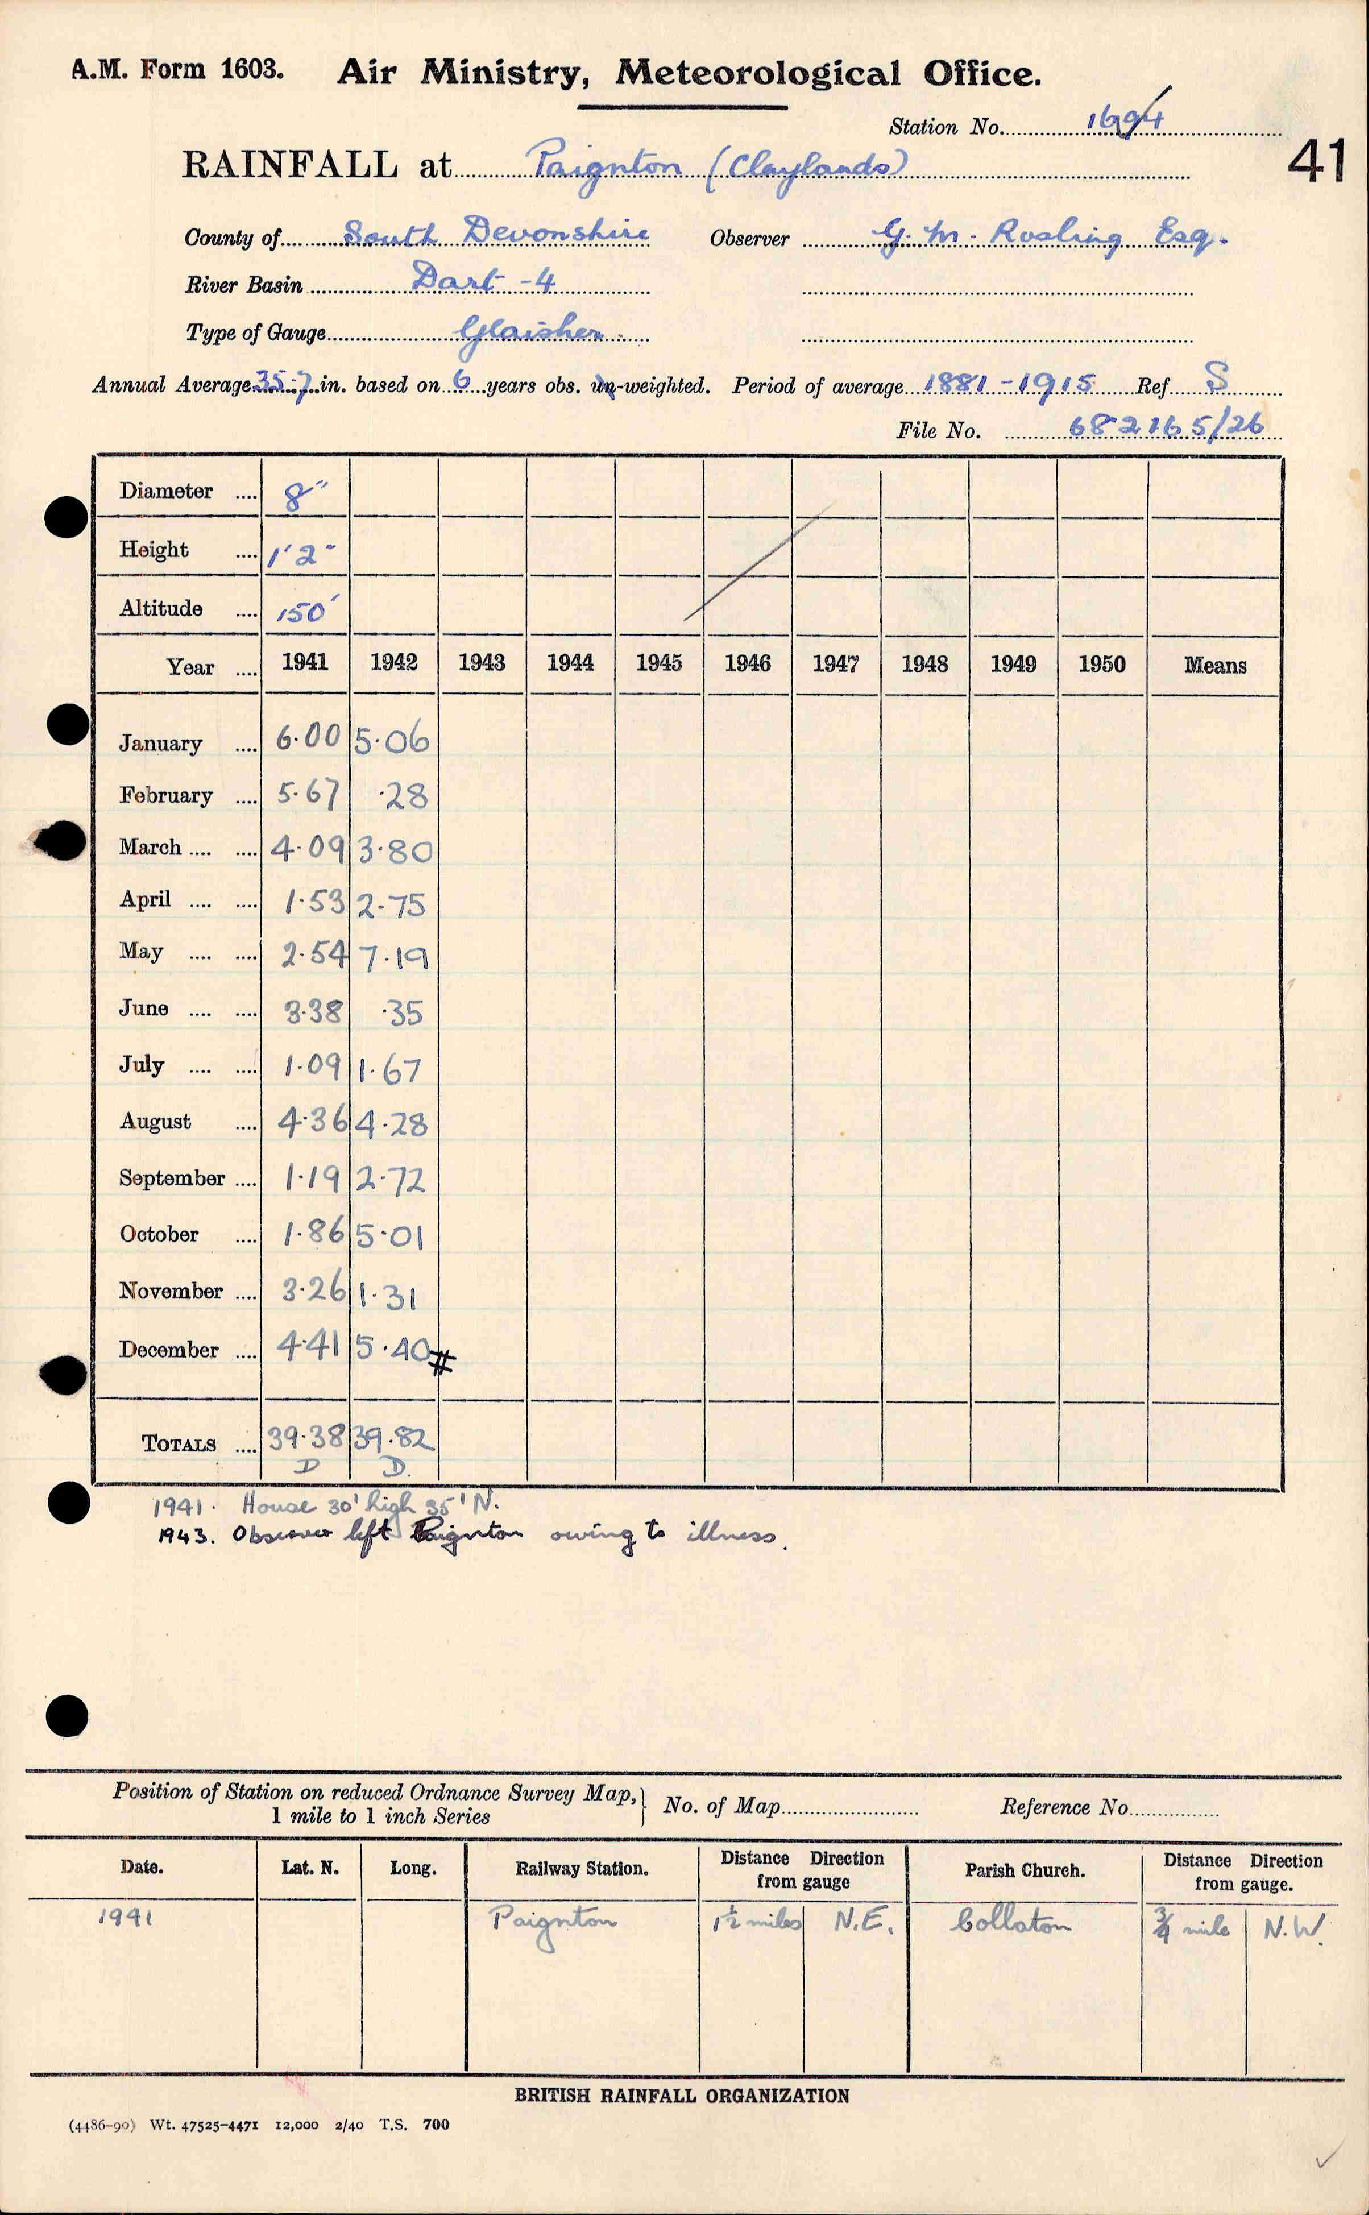 A.M. Form 1603. Air Ministry, Meteorological Office.
Station No. 1694
41
RAINFALL at Paignton (Claylands)
County of South Devonshire Observer G. M. Rosling Esq.
River Basin Dart -4
Type of Gauge Glaisher
Annual Average 35.7 in. based on 6 years obs. un-weighted. Period of average 1881-1915 Ref S
File No. 682165/26
Diameter .... 8"
Height .... 1'2"
Altitude .... 150'
Year .... 1941 1942 1943 1944 1945 1946 1947 1948 1949 1950 Means
January .... 6.00 5.06
February .... 5.67 .28
March .... .... 4.09 3.80
April .... .... 1.53 2.75
May .... .... 2.54 7.19
June .... .... 3.38 .35
July .... .... 1.09 1.67
August .... 4.36 4.28
September .... 1.19 2.72
October .... 1.86 5.01
November .... 3.26 1.31
December .... 4.41 5.40 #
TOTALS .... 39.38 39.82
D D.
1941. House 30' high 35' N.
1943. Observer left Paignton owing to illness.
Position of Station on reduced Ordnance Survey Map, 1 mile to 1 inch Series } No. of Map Reference No.
Date. Lat. N. Long. Railway Station. Distance Direction from gauge Parish Church. Distance Direction from gauge.
1941 Paignton 1½ miles N.E. Collaton ¾ mile N.W.
BRITISH RAINFALL ORGANIZATION
(4486-90) Wt. 47525-4471 12,000 2/40 T.S. 700